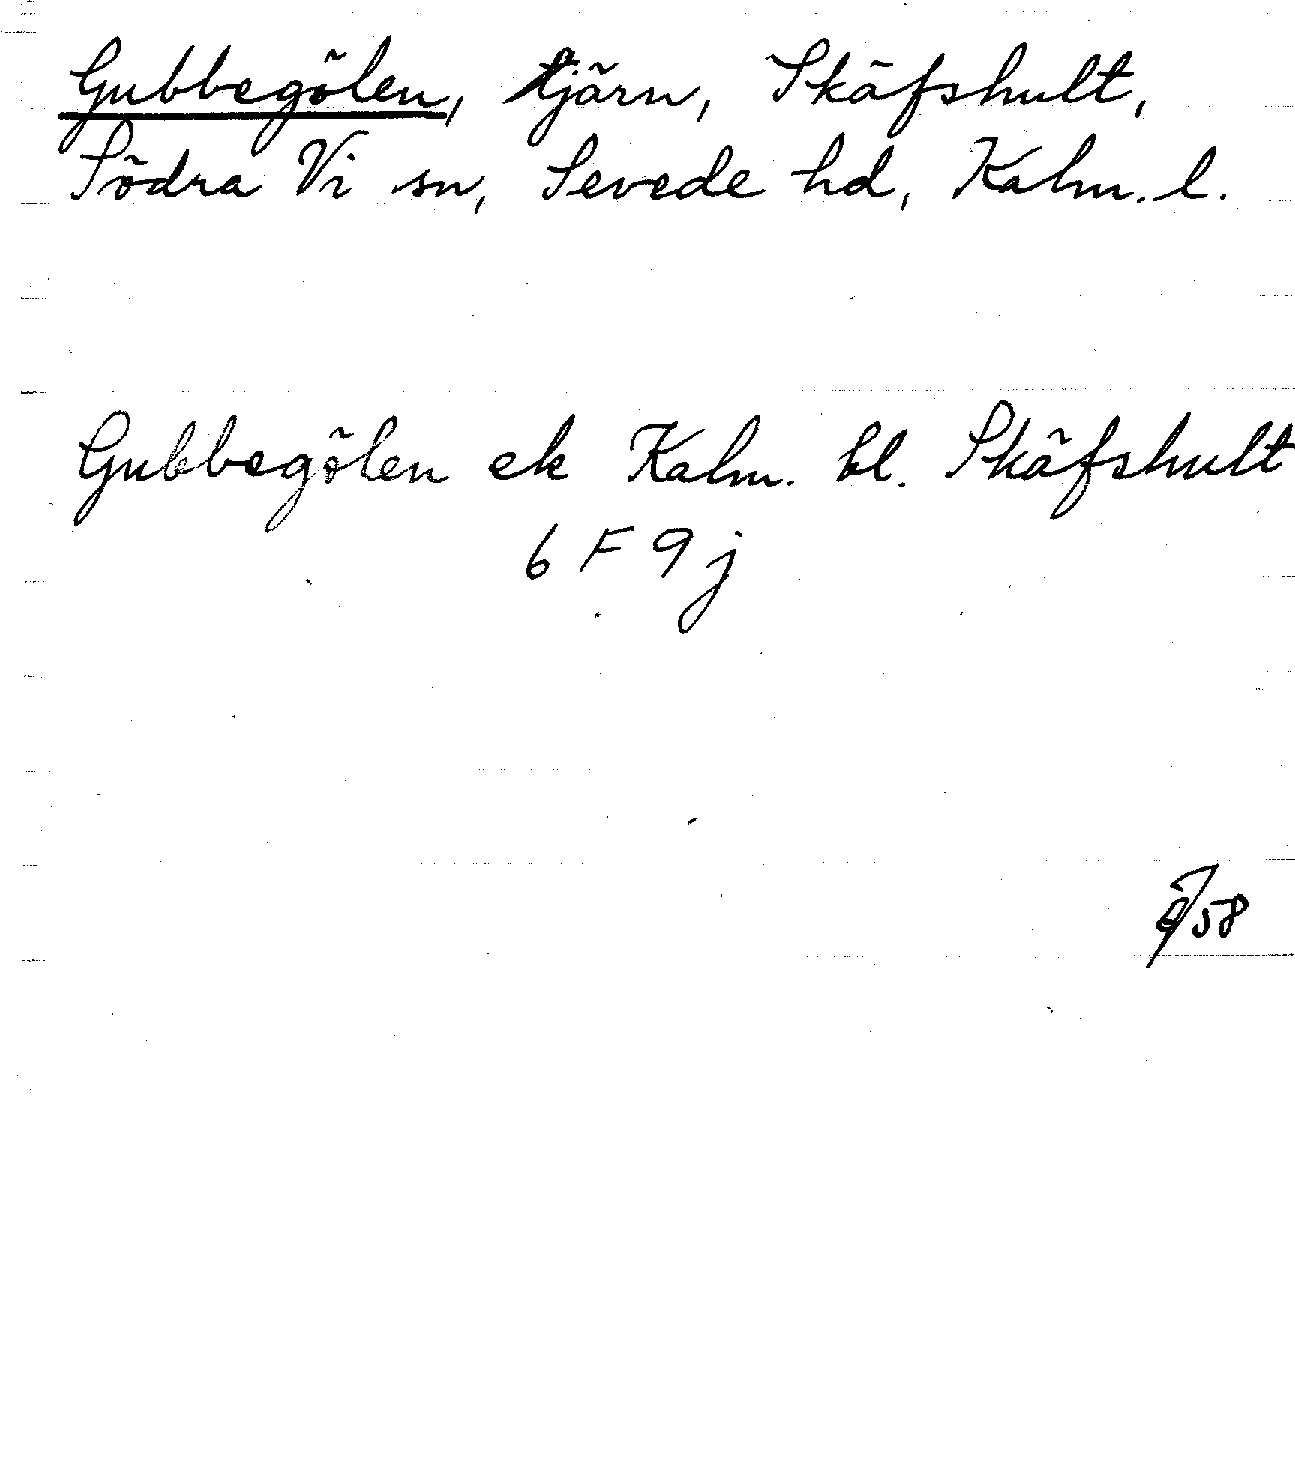 Gubbegölen, tjärn, Skäfshult,
Södra Vi sn, Sevede hd, Kalm. l.
Gubbegölen ek Kalm. bl. Skäfshult
6 F 9 j
58